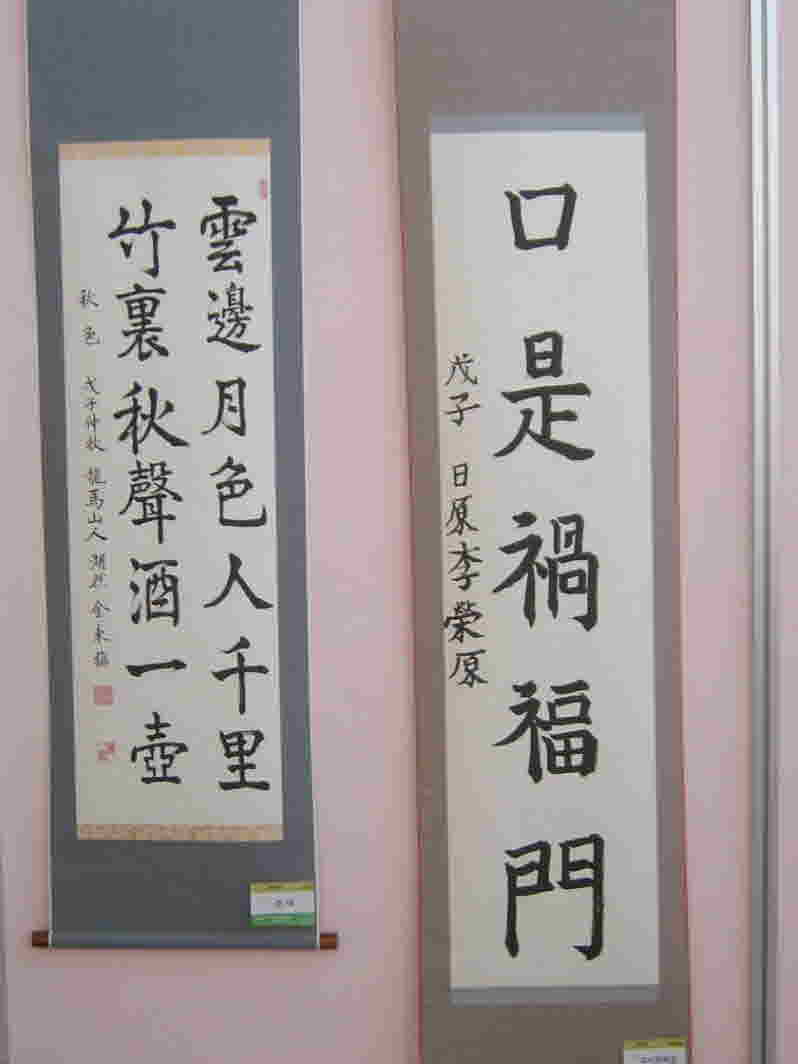 口是禍福門
戊子 日原李榮原
雲邊月色人千里
竹裏秋聲酒一壺
秋色 戊子仲秋 龍馬山人 湖然 金東